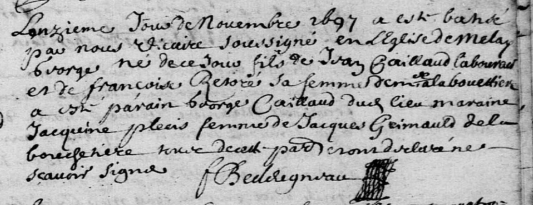 Lonzieme Jour de Novembre 1697 a esté batisé
par nous vicaire soussigné en L'Eglise de Melay
George né de ce jour fils de Jean Caillaud laboureur
et de françoise sa femme dem^t a la
a esté parain George Caillaud du lieu maraine
Jacquine pleeis femme de Jacques Grimauld de la
tous de cette par^sse ne
scavoir signer
f